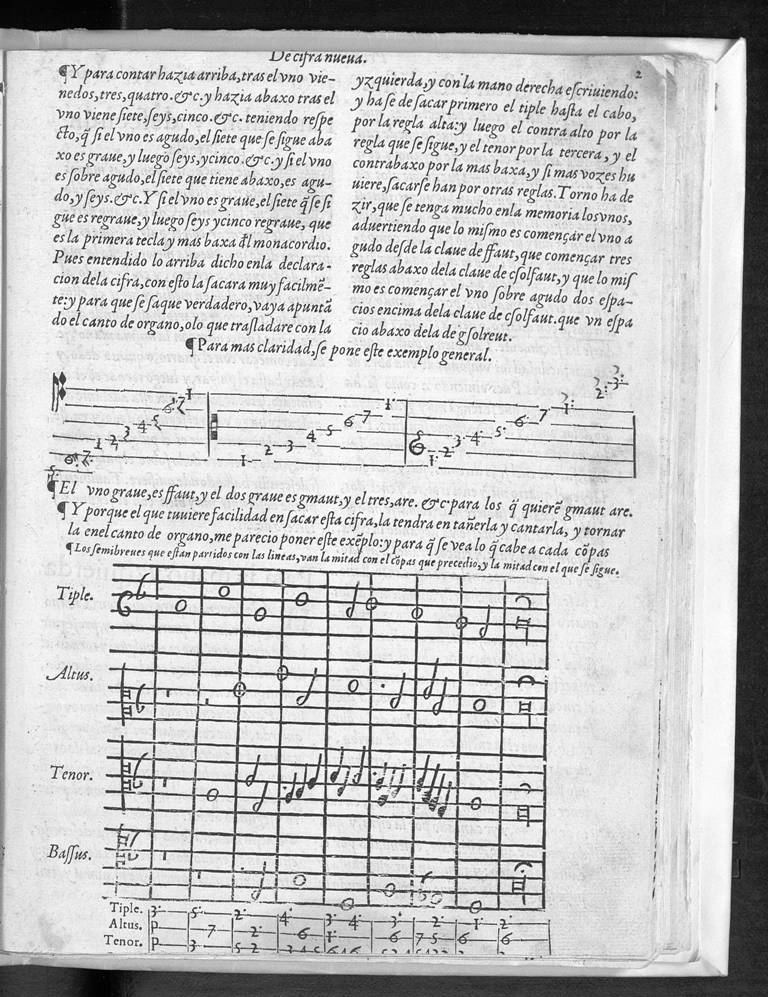 De cifra nueua.
2
¶Y para contar hazia arriba, tras el vno vie-
nedos, tres, quatro. &c. y hazia abaxo tras el
vno viene siete, seys, cinco. &c. teniendo respe
cto, q̃ si el vno es agudo, el siete que se sigue aba
xo es graue, y luego seys, y cinco. &c. y si el vno
es sobre agudo, el siete que tiene abaxo, es agu-
do, y seys. &c. Y si el vno es graue, el siete q̃ se si
gue es regraue, y luego seys y cinco regraue, que
es la primera tecla y mas baxa d̃l monacordio.
Pues entendido lo arriba dicho enla declara-
cion dela cifra, con esto la sacara muy facilmẽ-
te: y para que se saque verdadero, vaya apuntã
do el canto de organo, o lo que trasladare con la
yzquierda, y con la mano derecha escriuiendo:
y ha se de sacar primero el tiple hasta el cabo,
por la regla alta: y luego el contra alto por la
regla que se sigue, y el tenor por la tercera, y el
contrabaxo por la mas baxa, y si mas vozes hu
uiere, sacarse han por otras reglas. Torno ha de
zir, que se tenga mucho enla memoria los vnos,
aduertiendo que lo mismo es començar el vno a
gudo desde la claue de ffaut, que començar tres
reglas abaxo dela claue de csolfaut, y que lo mis
mo es començar el vno sobre agudo dos espa-
cios encima dela claue de csolfaut. que vn espa
cio abaxo dela de gsolreut.
¶Para mas claridad, se pone este exemplo general.
¶El vno graue, es ffaut, y el dos graue es gmaut, y el tres, are. &c para los q̃ quierẽ gmaut are.
¶Y porque el que tuuiere facilidad en sacar esta cifra, la tendra en tañerla y cantarla, y tornar
la enel canto de organo, me parecio poner este exẽplo: y para q̃ se vea lo q̃ cabe a cada cõpas
¶Los semibreues que estan partidos con las lineas, van la mitad con el cõpas que precedio, y la mitad con el que se sigue.
Tiple.
Altus.
Tenor.
Bassus.
Tiple. 3 5 2 4 3 4 3 2 1 2
Altus. p 7 2 6 1 6 7 5 6 6
Tenor. p 3 5 2